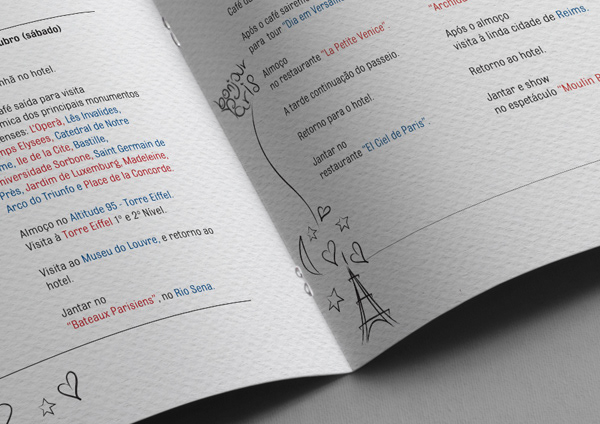 ubro (sábado)
nhã no hotel.
afé saída para visita
mica dos principais monumentos
enses: L'Operà, Lês Invalides,
mps Elysees, Catedral de Notre
me, Ile de la Cite, Bastille,
niversidade Sorbone, Saint Germain de
Près, Jardim de Luxemburg, Madeleine,
Arco do Triunfo e Place de la Concorde.
Almoço no Altitude 95 - Torre Eiffel.
Visita à Torre Eiffel 1º e 2º Nível.
Visita ao Museu do Louvre, e retorno ao
hotel.
Jantar no
"Bateaux Parisiens", no Rio Sena.
Bonjour
Paris
Café da
Após o café sairem
para tour "Dia em Versail
Almoço
no restaurante "La Petite Venice"
A tarde continuação do passeio.
Retorno para o hotel.
Jantar no
restaurante "El Ciel de Paris".
"Archidu
Após o almoço
visita à linda cidade de Reims.
Retorno ao hotel.
Jantar e show
no espetáculo "Moulin R